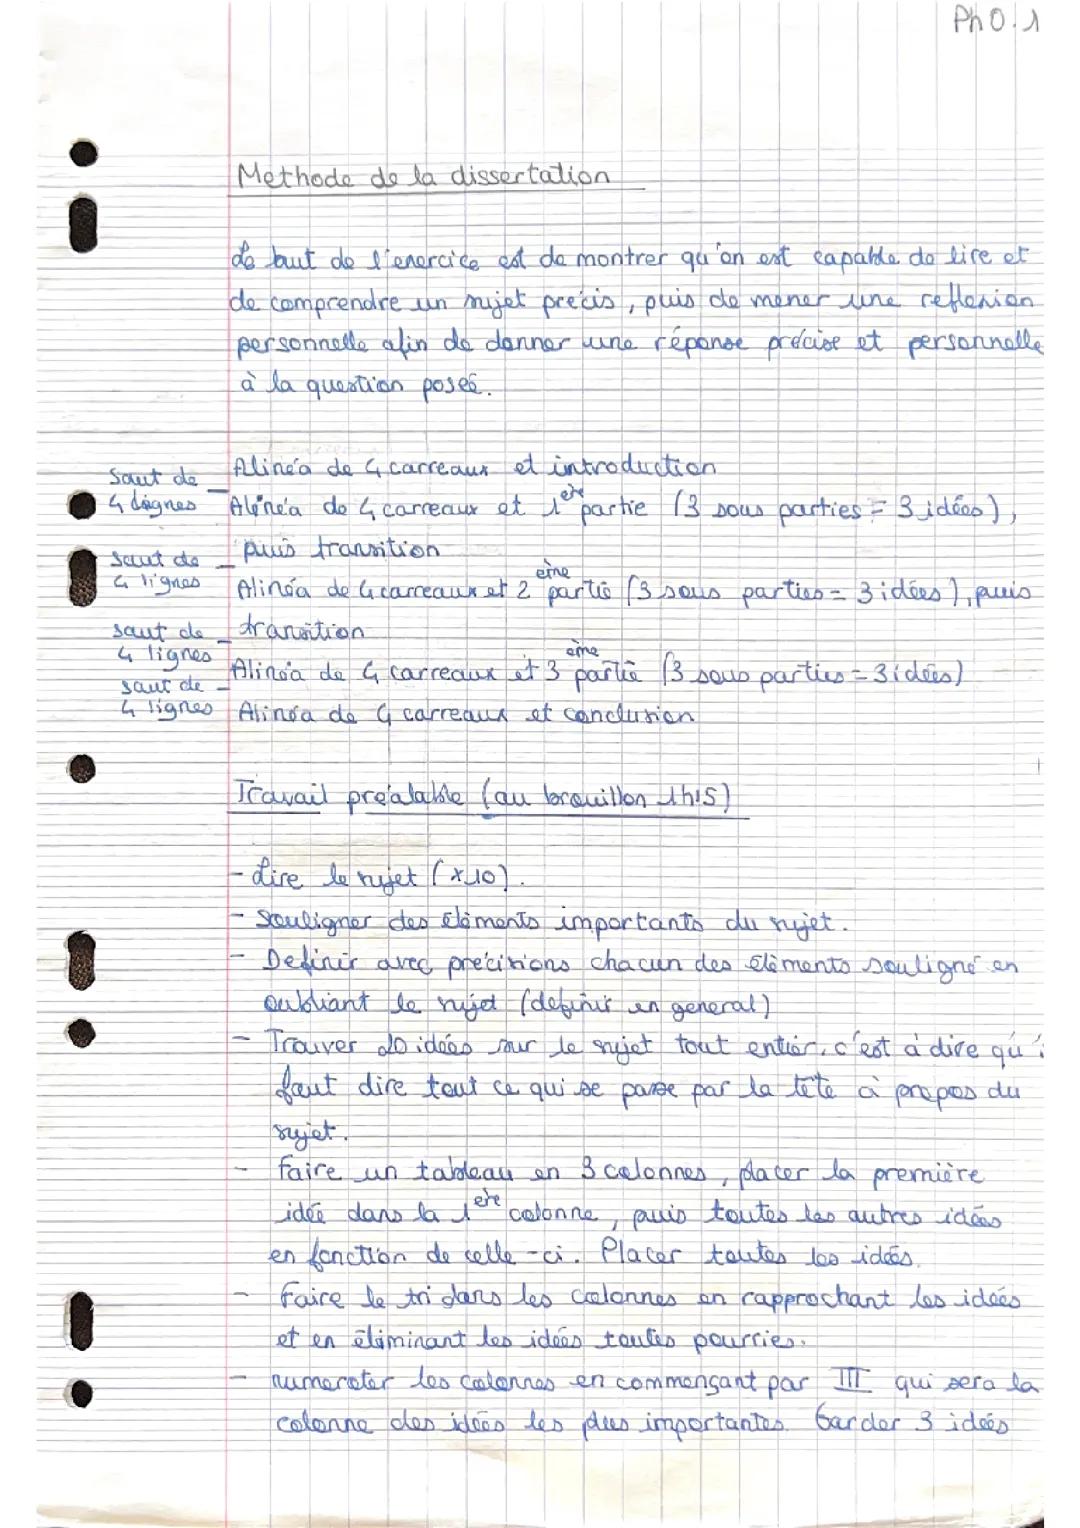 Ph 0.1
Methode de la dissertation
Le but de l'exercice est de montrer qu'on est capable de lire et
de comprendre un sujet précis, puis de mener une reflexion
personnelle afin de donner une réponse précise et personnelle
à la question poseé.
Alinéa de 4 carreaux et introduction
Saut de
4 lignes
Alinéa de 4 carreaux et 1ère partie (3 sous parties = 3 idées),
puis transition
Saut de
4 lignes
Alinéa de 4 carreaux et 2ème partie (3 sous parties = 3 idées), puis
transition
saut de
4 lignes
Alinéa de 4 carreaux et 3ème partie (3 sous parties = 3 idées)
saut de
4 lignes
Alinéa de 4 carreaux et conclusion
Travail préalable (au brouillon 1h15)
- Lire le sujet (x10).
- Souligner des éléments importants du sujet.
- Definir avec précisions chacun des éléments souligné en
oubliant le sujet (définir en general)
- Trouver 20 idées sur le sujet tout entier, c'est à dire qu'i
faut dire tout ce qui se passe par la tête à propos du
sujet.
- Faire un tableau en 3 colonnes, placer la première
idée dans la 1ère colonne, puis toutes les autres idées
en fonction de celle-ci. Placer toutes les idées.
- Faire le tri dans les colonnes en rapprochant les idées
et en éliminant les idées toutes pourries.
- numeroter les colonnes en commençant par III qui sera la
colonne des idées les plus importantes. Garder 3 idées